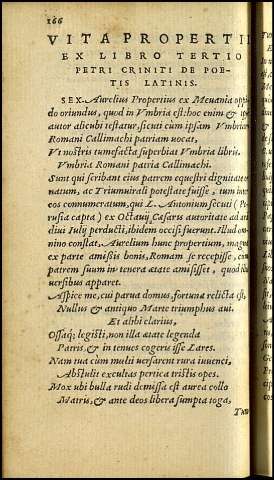 166
VITA PROPERTII
EX LIBRO TERTIO
PETRI CRINITI DE POE-
TIS LATINIS.
SEX. Aurelius Propertius ex Meuania oppi
do oriundus, quod in Vmbria est: hoc enim & ip
autor alicubi testatur, sicuti cum ipsam Vmbriam
Romani Callimachi patriam uocat,
Vt nostris tumefacta superbiat Vmbria libris.
Vmbria Romani patria Callimachi.
Sunt qui scribant eius patrem equestri dignitate
natum, ac Triumuirali potestate fuisse, tum inter
eos connumeratum, qui L. Antonium secuti (Pe
rusia capta) ex Octauij Cæsaris autoritate ad aram
diui Iulij perducti, ibidem occisi fuerunt. Illud om
nino constat, Aurelium hunc propertium, magna
ex parte amissis bonis, Romam se recepisse, cum
patrem suum in tenera ætate amisisset, quod his
uersibus apparet.
Aspice me, cui parua domus, fortuna relicta est,
Nullus & antiquo Marte triumphus aui.
Et alibi clarius,
Ossaq; legisti, non illa ætate legenda
Patris, & in tenues cogeris ipse Lares.
Nam tua cum multi uersarent rura iuuenci,
Abstulit excultas pertica tristis opes.
Mox ubi bulla rudi demissa est aurea collo
Matris, & ante deos libera sumpta toga,
Tum